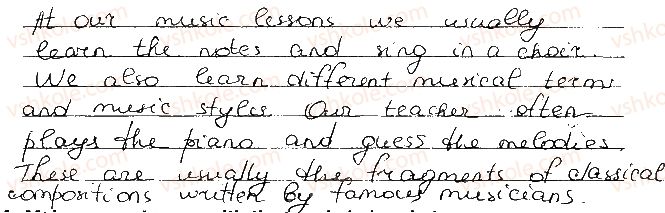 At our music lessons we usually
learn the notes and sing in a choir.
We also learn different musical terms
and music styles. Our teacher often
plays the piano and guess the melodies.
These are usually the fragments of classical
compositions written by famous musicians.